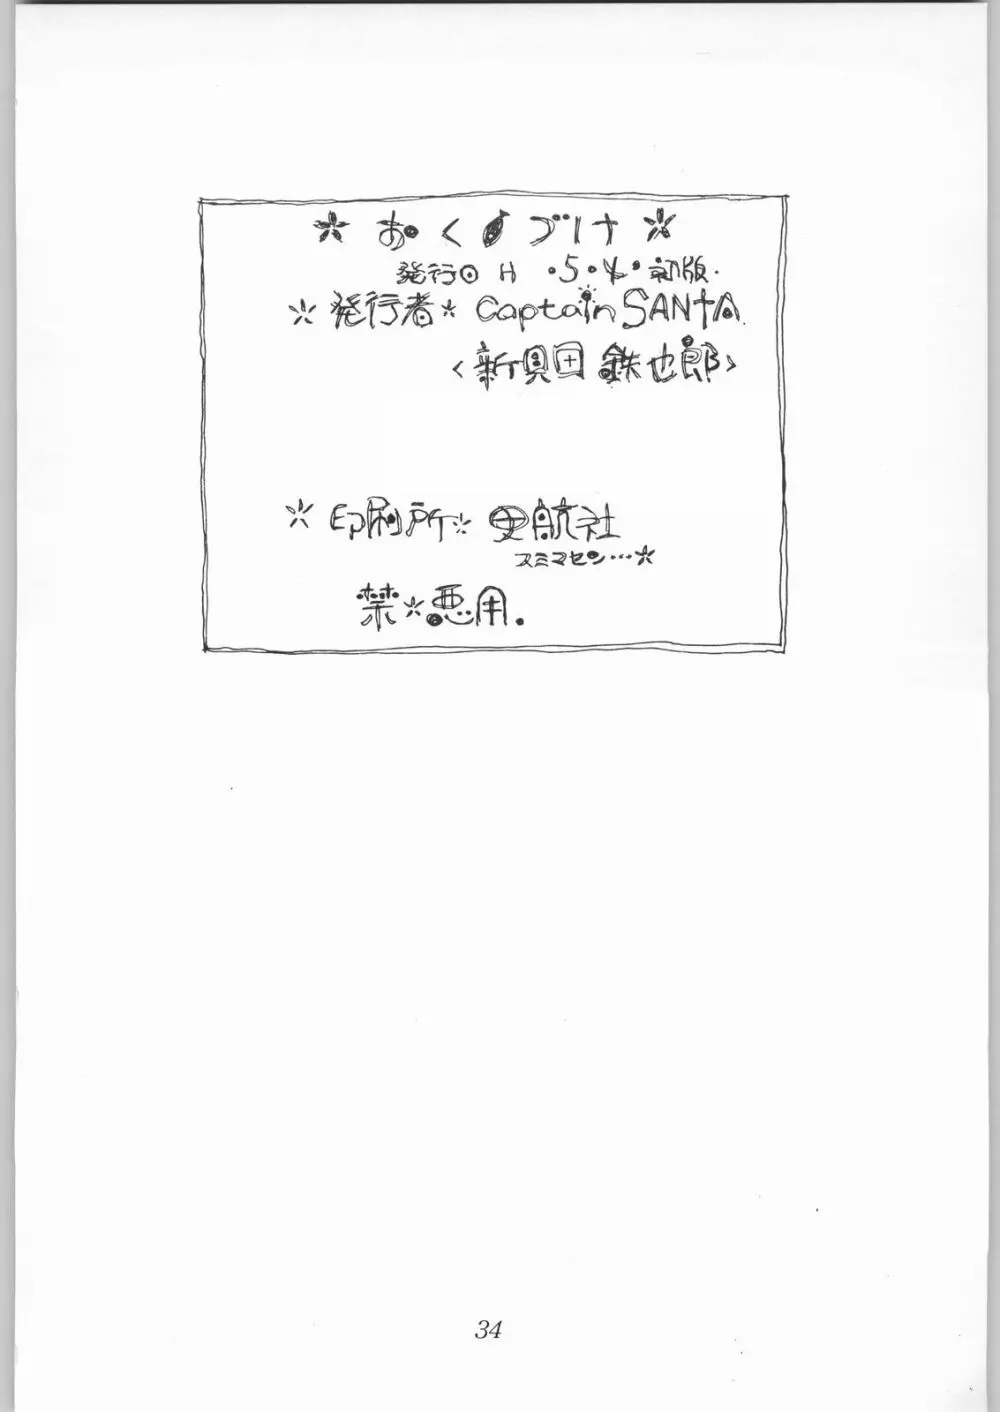 ＊ おくづけ ＊
発行日 H .5.4. 初版.
＊ 発行者＊ Captain SANTA.
<新貝田 鉄也郎>
＊ 印刷所＊ 曳航社
スミマセン…＊
禁＊悪用.
34